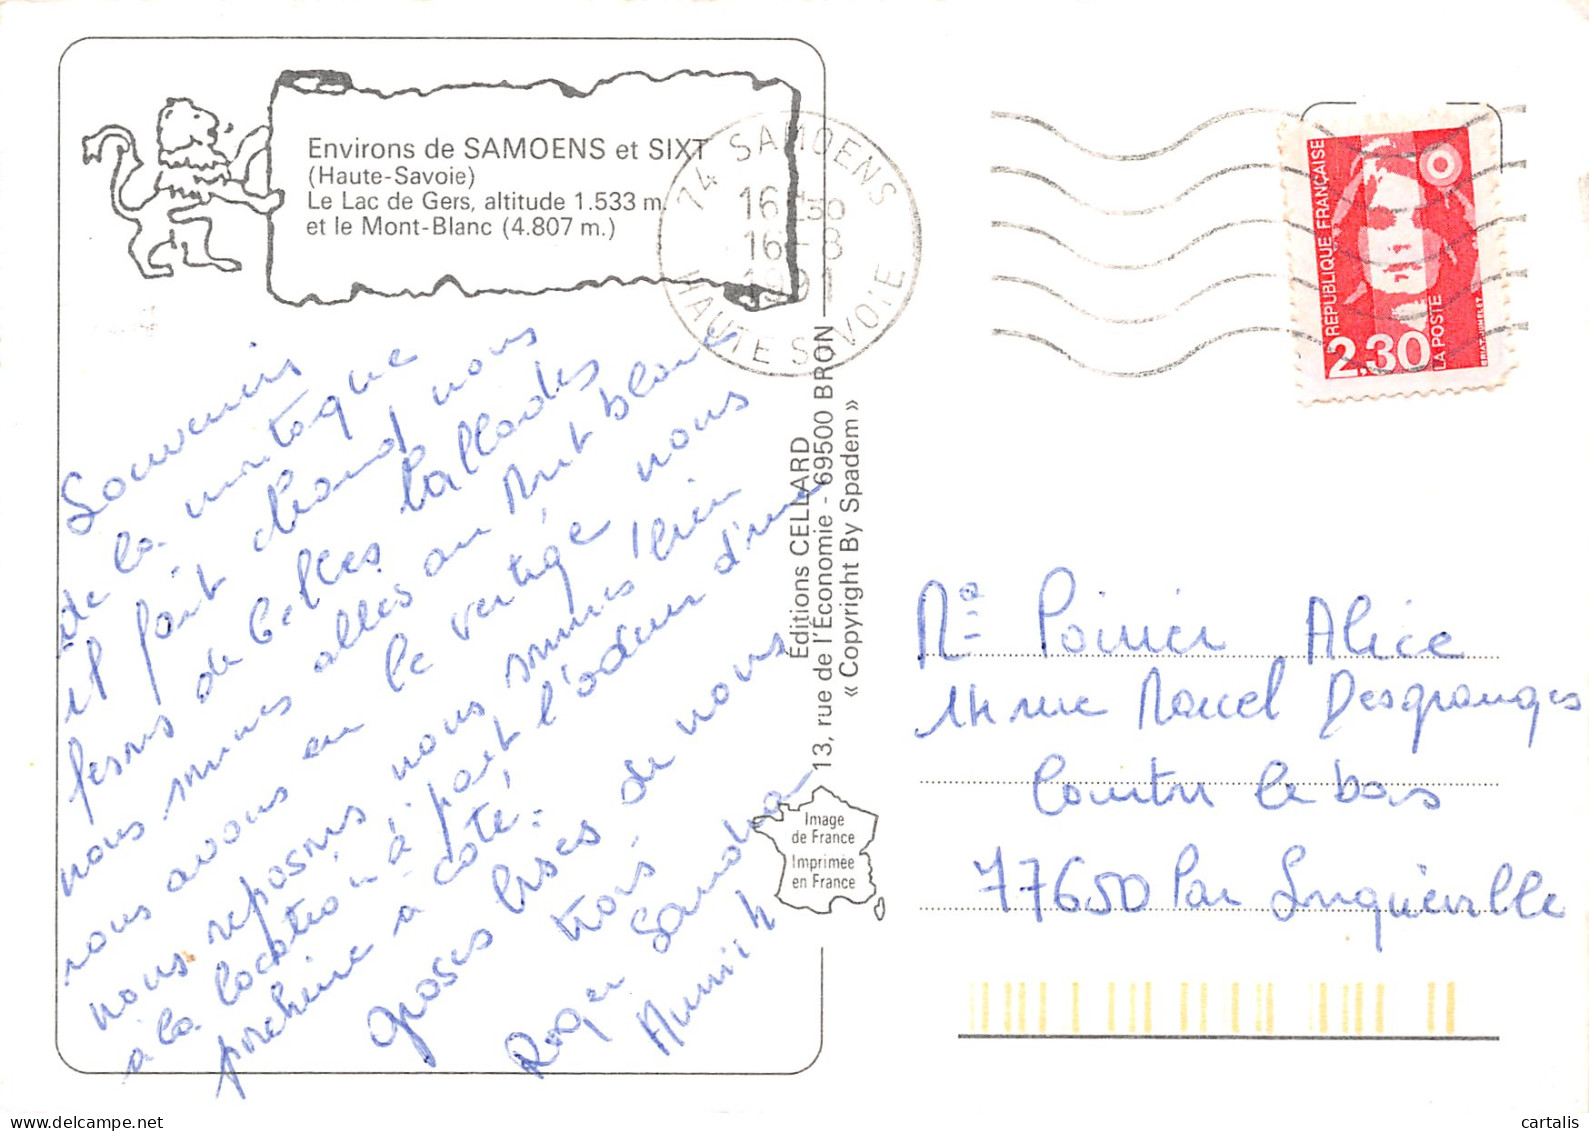 Environs de SAMOENS et SIXT
(Haute-Savoie)
Le Lac de Gers, altitude 1.533 m.
et le Mont-Blanc (4.807 m.)
74 SAMOENS
16H30
16-8
1991
HAUTE SAVOIE
REPUBLIQUE FRANÇAISE
2,30
LA POSTE
BRIAT-JUMELET
Souvenirs
de la montagne
il fait chaud nous
fesons de belles ballades
nous sommes allés au Mont blanc
nous avons eu le vertige nous
nous reposons, nous sommes bien
à la location à part l'odeur d'une
porcherie à coté.
Groses bises de nous
trois
Roger Sandra
Annick
Éditions CELLARD
13, rue de l'Économie - 69500 BRON
« Copyright By Spadem »
Image
de France
Imprimée
en France
Me Poirier Alice
14 rue Marcel Desgranges
Coutru le bas
77650 Par Longueville
cartalis